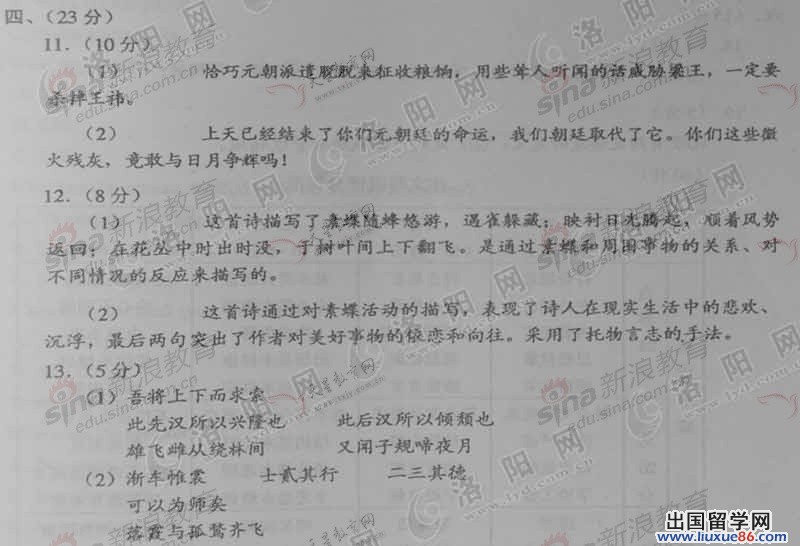 四、（23 分）
11．（10 分）
（1） 恰巧元朝派遣脱脱来征收粮饷，用些耸人听闻的话威胁梁王，一定要
杀掉王祎。
（2） 上天已经结束了你们元朝廷的命运，我们朝廷取代了它。你们这些微
火残灰，竟敢与日月争辉吗！
12．（8 分）
（1） 这首诗描写了素蝶随蜂悠游，遇雀躲藏；映衬日光腾起，顺着风势
返回；在花丛中时出时没，于树叶间上下翻飞。是通过素蝶和周围事物的关系、对
不同情况的反应来描写的。
（2） 这首诗通过对素蝶活动的描写，表现了诗人在现实生活中的悲欢、
沉浮，最后两句突出了作者对美好事物的依恋和向往。采用了托物言志的手法。
13．（5 分）
（1）吾将上下而求索
此先汉所以兴隆也 此后汉所以倾颓也
雄飞雌从绕林间 又闻子规啼夜月
（2）渐车帷裳 士贰其行 二三其德
可以为师矣
落霞与孤鹜齐飞
sina 新浪教育
edu.sina.com.cn
洛阳网
www.lyd.com.cn
出国留学网
www.liuxue86.com